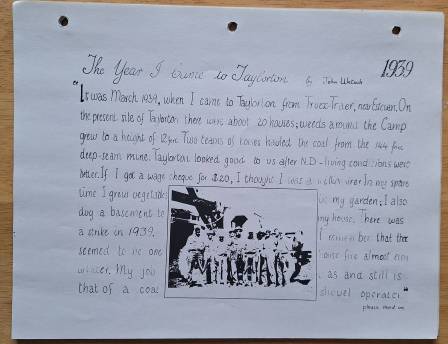 The Year I Came to Taylorton By John Wilcock 1939
"It was March 1939, when I came to Taylorton from Truax-Traer, near Estevan. On
the present site of Taylorton there were about 20 houses; weeds around the Camp
grew to a height of 12 feet. Two teams of horses hauled the coal from the
deep-seam mine. Taylorton looked good to us after N.D - living conditions were
better. If I got a wage cheque for $20, I thought I was a In my spare
time I grew vegetables my garden; I also
dug a basement to my house. There was
a strike in 1939. I remember that there
seemed to be one fire almost
winter. My job as and still is
that of a coal shovel operator."
please hand on